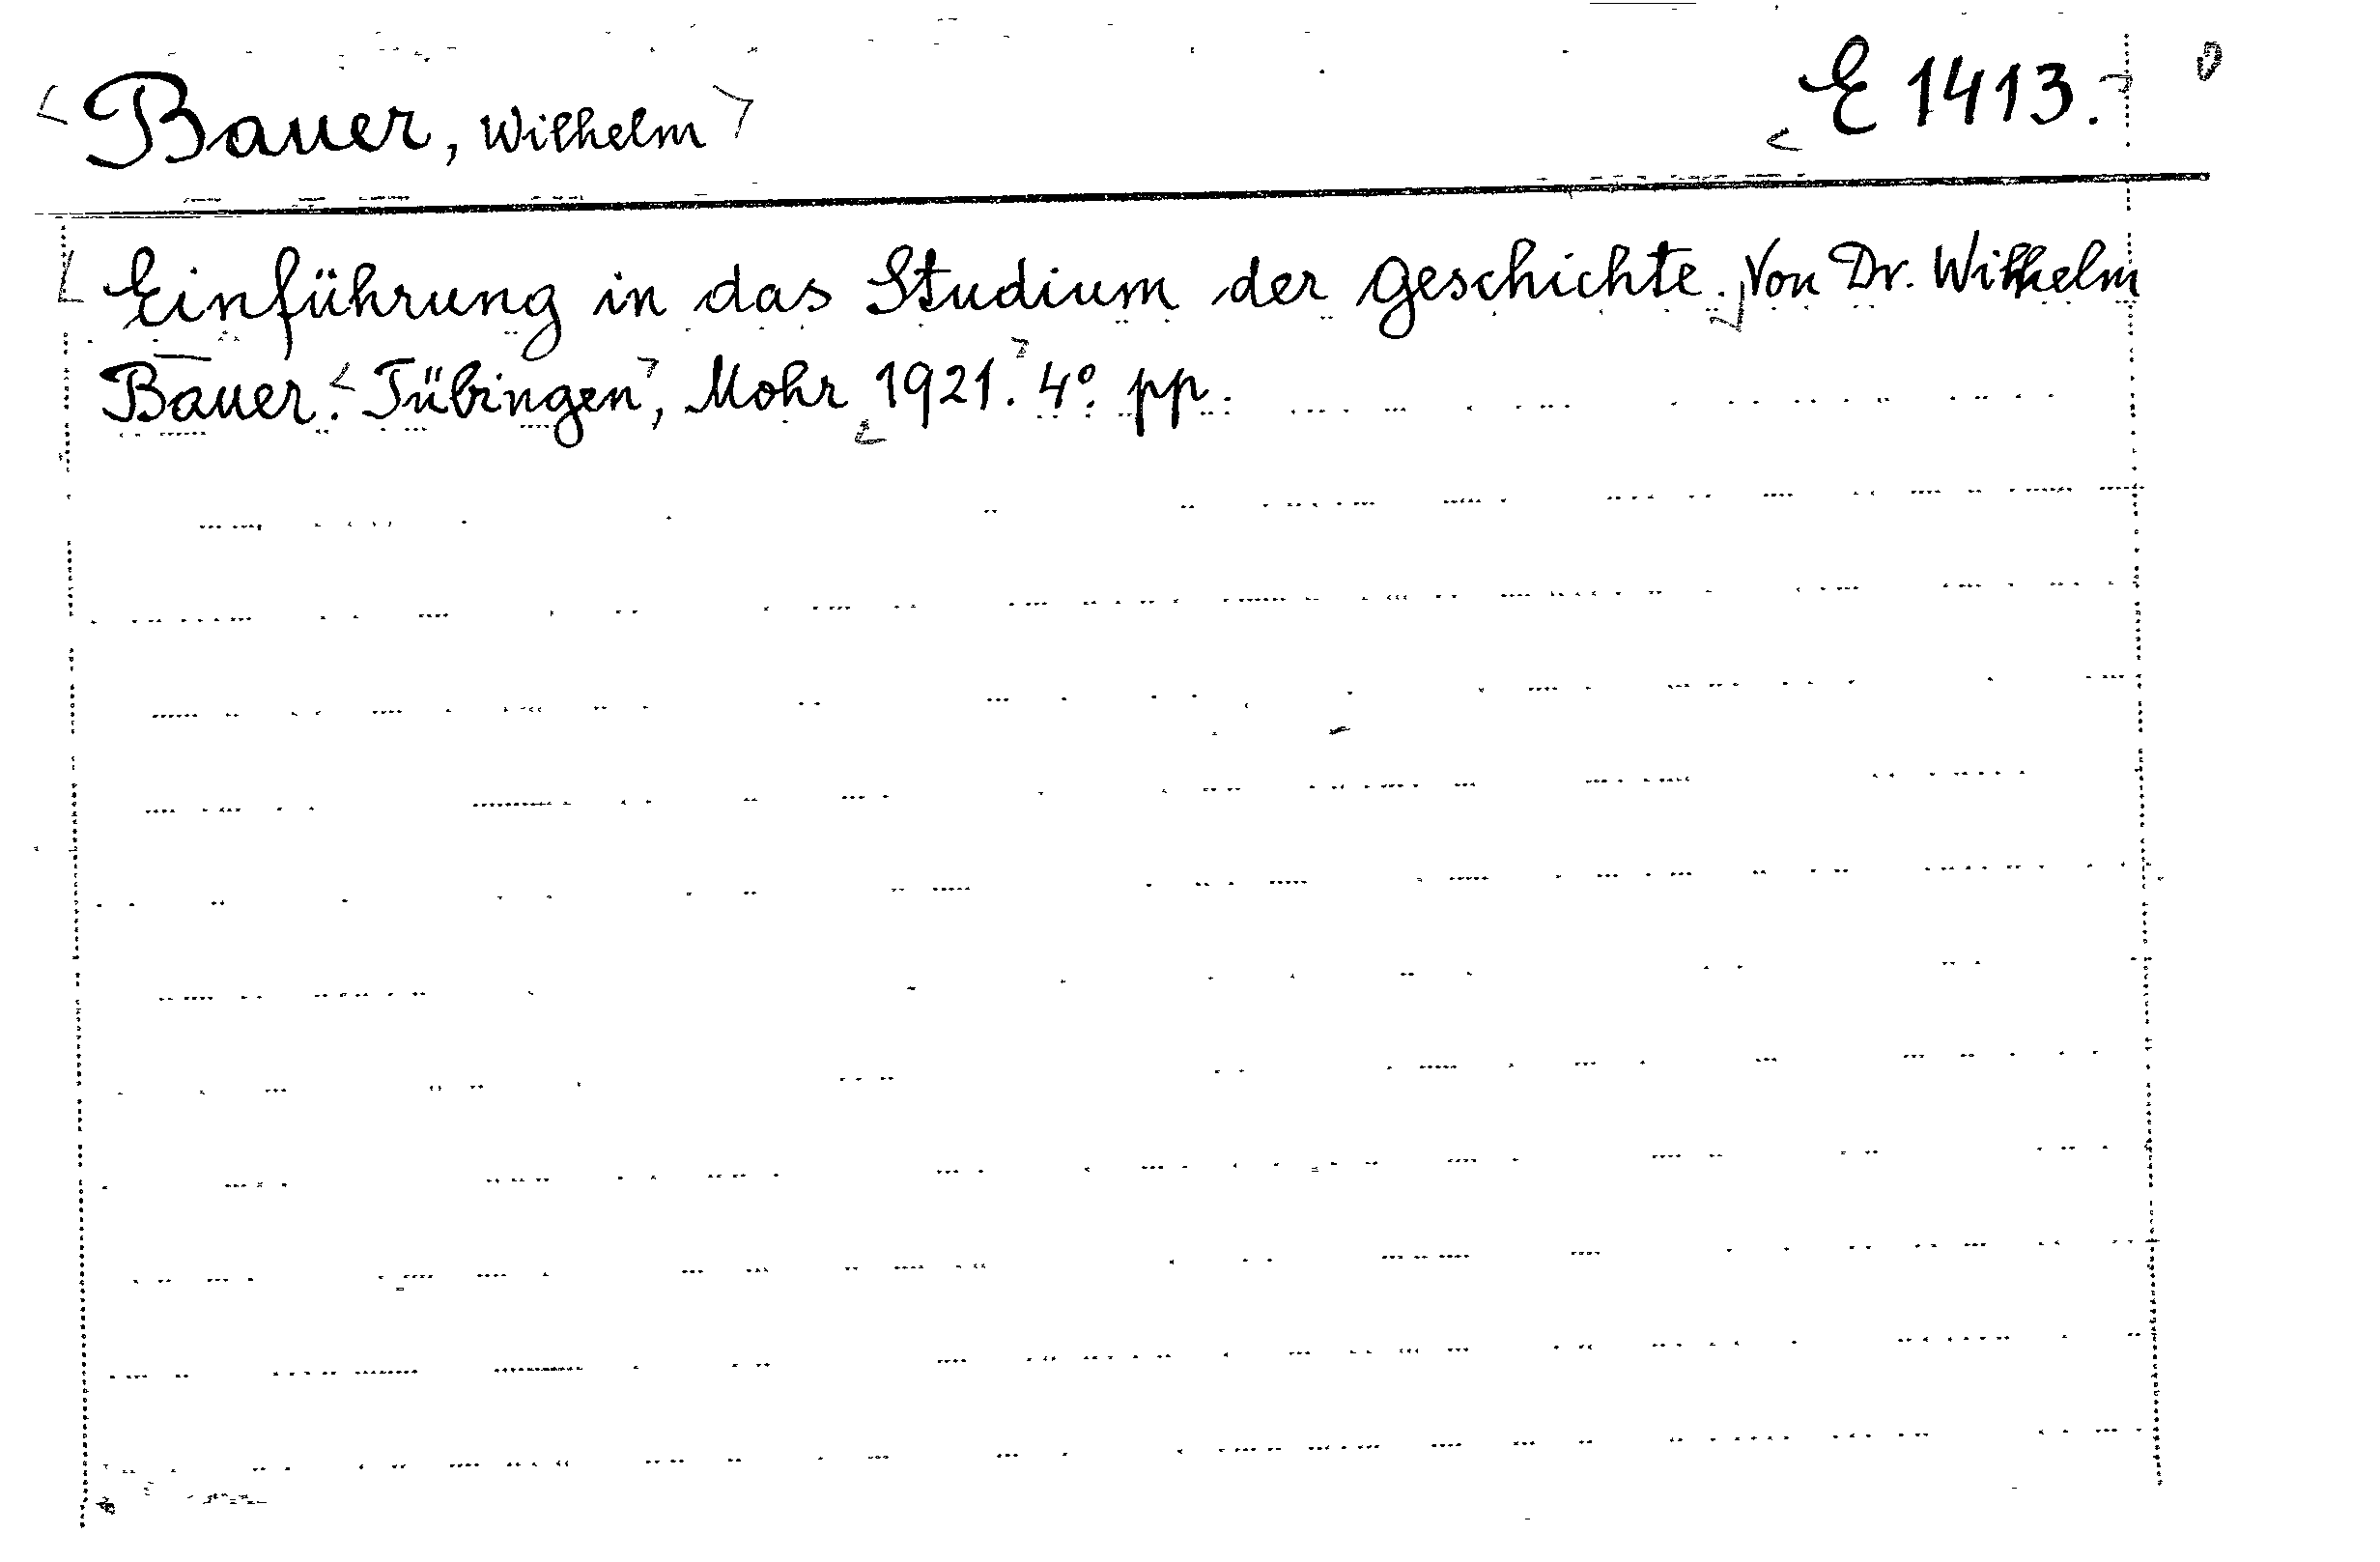 Bauer, Wilhelm E 1413.
Einführung in das Studium der Geschichte. Von Dr. Wilhelm
Bauer. Tübingen, Mohr 1921. 4° pp.